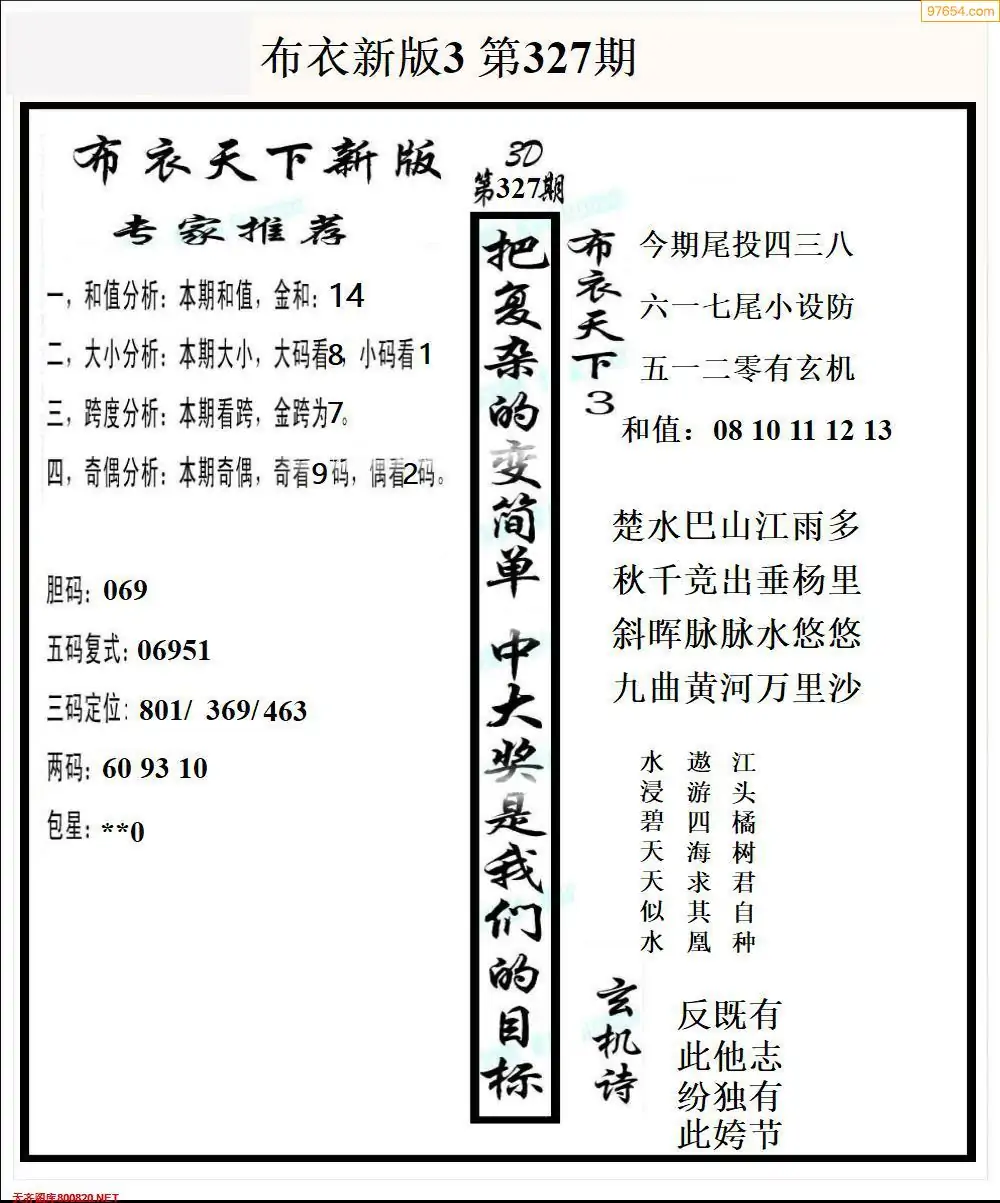 97654.com
布衣新版3 第327期
布衣天下新版
专家推荐
一，和值分析：本期和值，金和：14
二，大小分析：本期大小，大码看8，小码看1
三，跨度分析：本期看跨，金跨为7。
四，奇偶分析：本期奇偶，奇看9码，偶看2码。
胆码：069
五码复式：06951
三码定位：801/ 369/463
两码：60 93 10
包星：**0
3D
第327期
把复杂的变简单 中大奖是我们的目标
布衣天下3
今期尾投四三八
六一七尾小设防
五一二零有玄机
和值：08 10 11 12 13
楚水巴山江雨多
秋千竞出垂杨里
斜晖脉脉水悠悠
九曲黄河万里沙
江头橘树君自种
遨游四海求其凰
水浸碧天天似水
玄机诗
反既有
此他志
纷独有
此姱节
天齐图库800820.NET